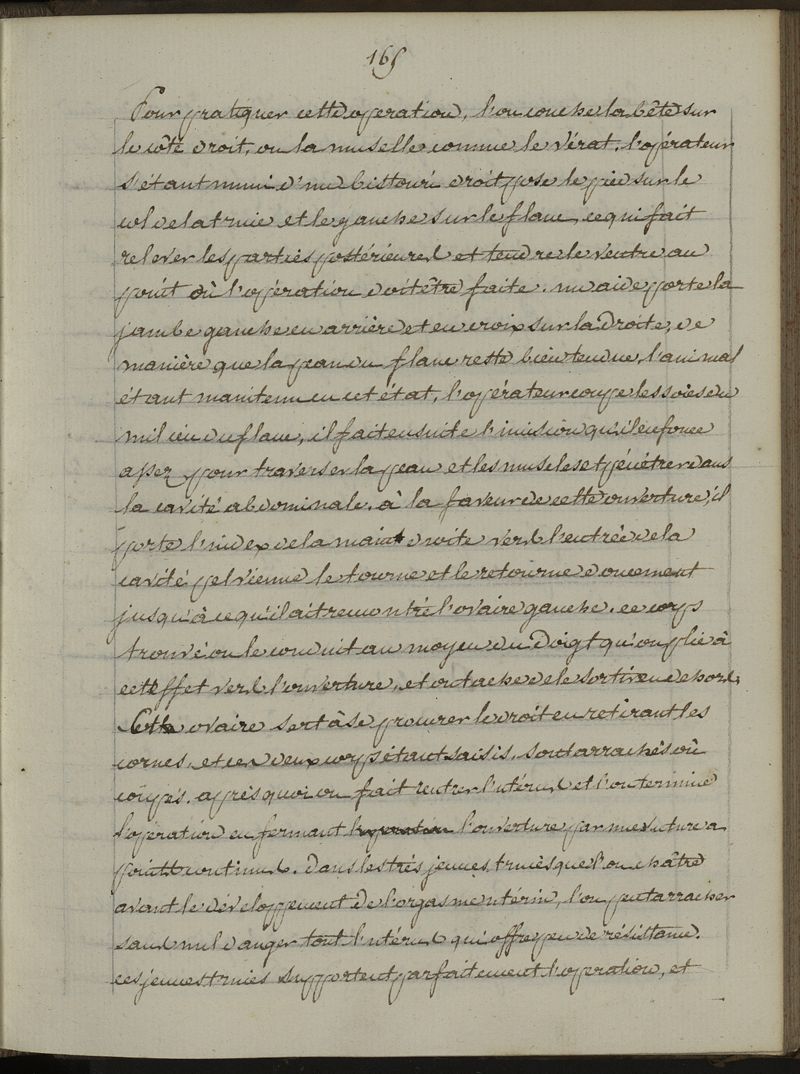 165
Pour pratiquer cette operation, l'on couche la bête sur
le côté droit, on la muselle comme le vérat. l'opérateur
s'étant muni d'un bistouri droit pose le pied sur le
col de la truie et le gauche sur le flanc, ce qui fait
relever les parties postérieures et tendre le ventre au
point où l'opération doit être faite. un aide porte la
jambe gauche en arrière et en croix sur la droite, de
manière que la peau du flanc reste bien tendue, l'animal
étant maintenu en cet état, l'opérateur coupe les soies du
milieu du flanc, il fait ensuite l'incision qu'il enfonce
assez pour traverser la peau et les muscles et pénétrer dans
la cavité abdominale. à la faveur de cette ouverture, il
porte l'index de la main droite vers l'entrée de la
cavité pelvienne le tourne et le retourne doucement
jusqu'à ce qu'il ait rencontré l'ovaire gauche. ce corps
trouvé on le conduit au moyen du doigt qu'on plie à
cet effet vers l'ouverture, et on tache de le sortir en dehors,
Cette ovaire sert à se procurer le droit en retirant les
cornes, et ces deux corps étant saisis, sont arrachés où
coupés. après quoi on fait rentrer l'utérus et l'on termine
l'opération en fermant l'operation l'ouverture par une suture a
points continus. dans les très jeunes truies que l'on châtre
avant le développement de l'orgasme utérin, l'on peut arracher
sans nul danger tout l'utérus qui offre peu de résistance.
ces jeunes truies supportent parfaitement l'operation, et